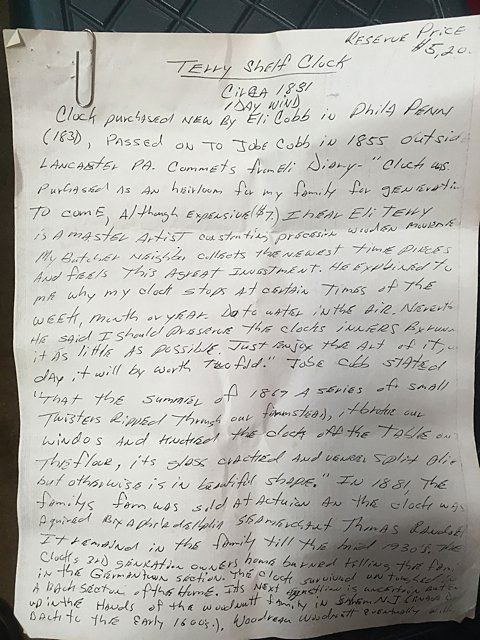 Reserve Price
$5,20
Terry Shelf Clock
Circa 1831
1 Day Wind
Clock purchased new By Eli Cobb in Phila Penn
(1831), Passed on to Jobe Cobb in 1855 outside
Lancaster PA. Commets from Eli Diary - "Clock was
Purchased as an heirloom for my family for generatin
to come, Although expensive ($7.) I hear Eli Terry
is a master Artist constructing precision wooden
My Butcher Neighbor collects the newest time pieces
and feels this a great Investment. He explained to
me why my clock stops at certain times of the
week, month or year. Do to water in the air.
He said I should preserve the clocks inners By
it as little as possible. Just enjoy the art of it,
day, it will be worth twofold." Jobe Cobb stated
"That the summer of 1867 A series of small
Twisters Ripped Through our farmstead, it broke our
windos and knocked the clock off the table on
the flour, its glass cracked and veneer split
but otherwise is in beautiful shape." In 1881, The
familys farm was sold at and the clock was
aquired By a philadelphia Seamerchant Thomas
It remained in the family till the mid 1930's. The
Clocks 3rd generation owners home burned killing the
in the Germantown section. The clock survived untouched in
a Back sector of the Home. Its next is uncertain
up in the Hands of the Woodnutt family in Salem N.J.
Back to the Early 1600s.). Woodnutt eventually